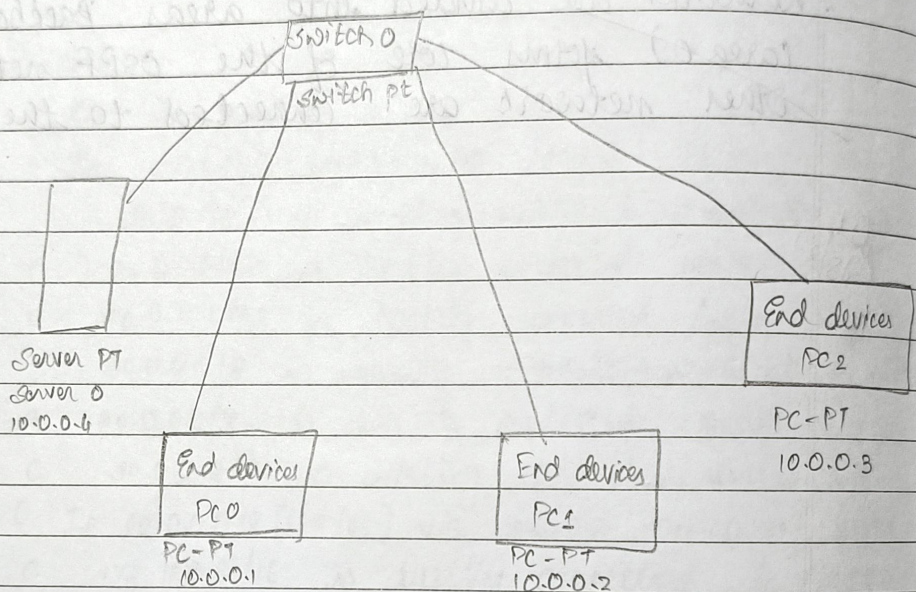 Switch 0
Switch pt
Server PT
Server 0
10.0.0.4
End devices
PC0
PC-PT
10.0.0.1
End devices
PC1
PC-PT
10.0.0.2
End devices
PC2
PC-PT
10.0.0.3